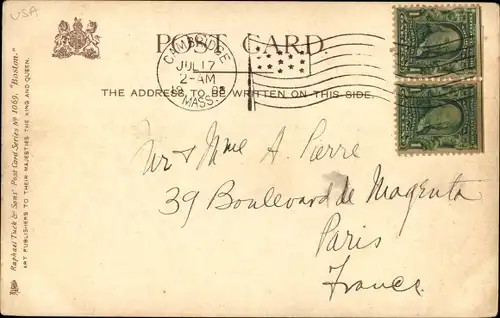 USA
POST CARD.
CAMBRIDGE
JUL 17
2-AM
MASS.
THE ADDRESS TO BE WRITTEN ON THIS SIDE.
Mr & Mme A. Pierre
39 Boulevard de Magenta
Paris
France.
Raphael Tuck & Sons' Post Card Series Nº 1069. "Boston."
ART PUBLISHERS TO THEIR MAJESTIES THE KING AND QUEEN.
1
1
1
1